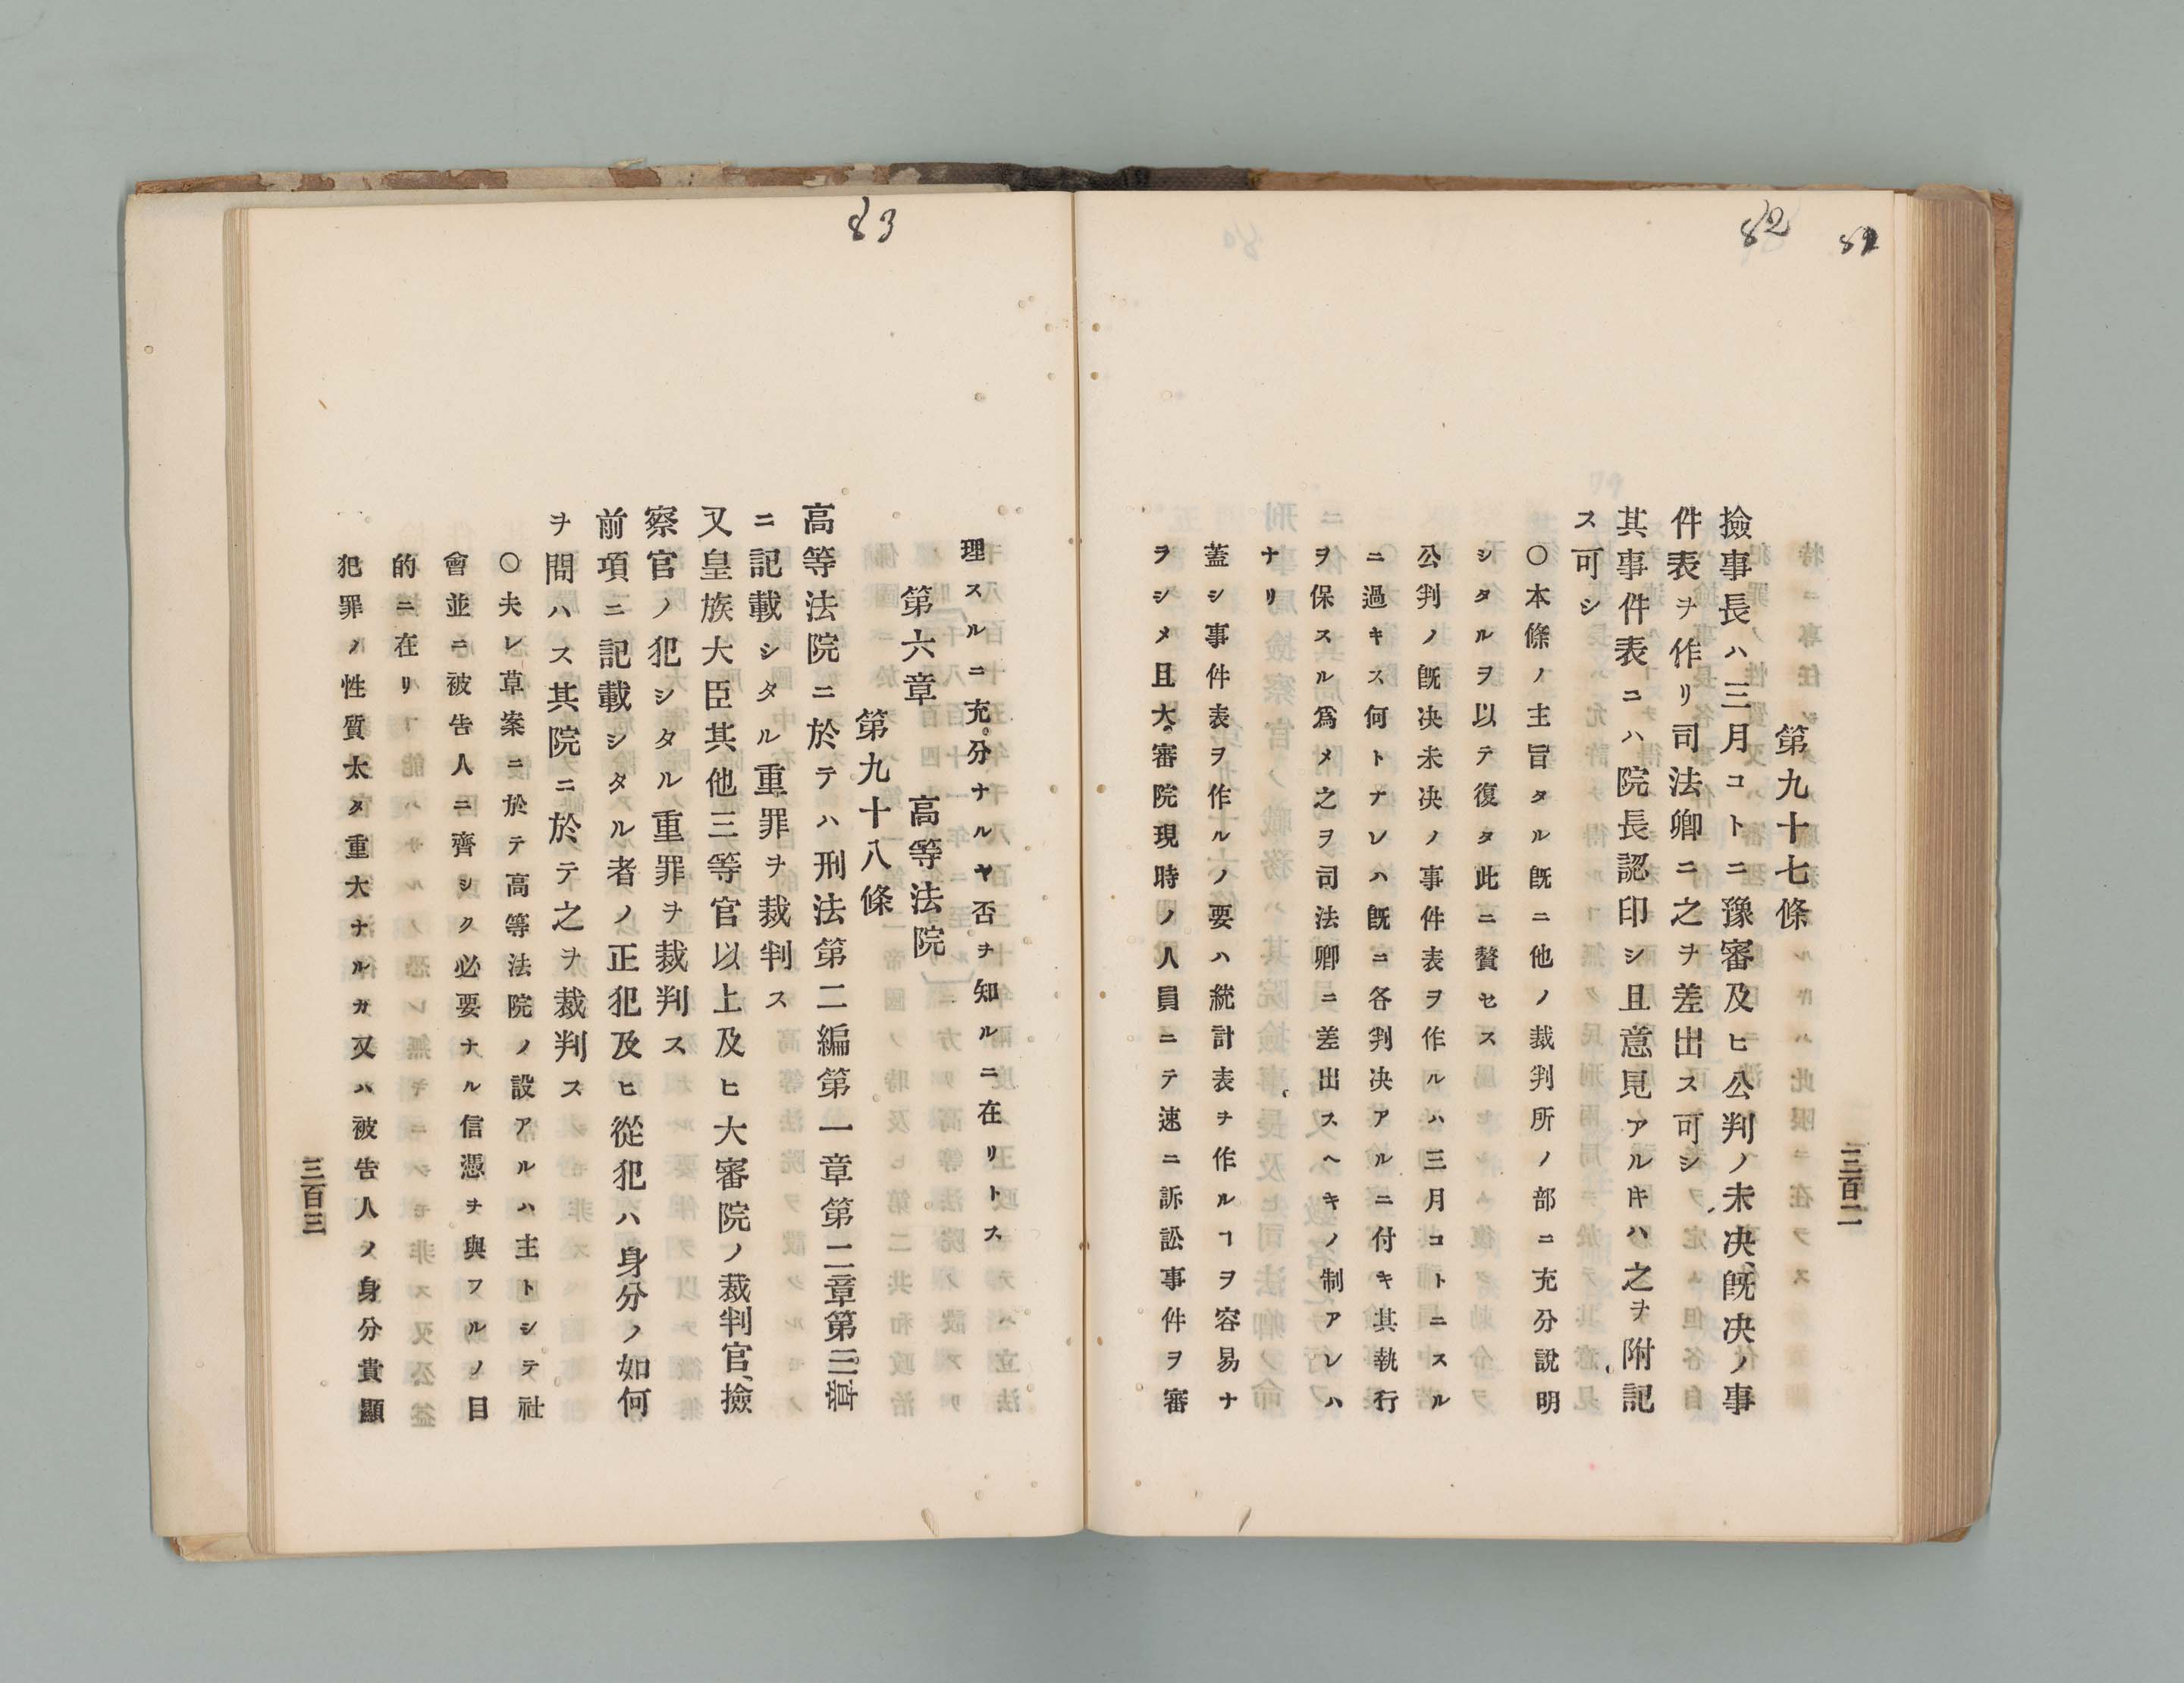 82
82
第九十七條
撿事長ハ三月コトニ豫審及ヒ公判ノ未決、既决ノ事
件表ヲ作リ司法卿ニ之ヲ差出ス可シ
其事件表ニハ院長認印シ且意見アルキハ之ヲ附記
ス可シ
〇本條ノ主旨タル既ニ他ノ裁判所ノ部ニ充分說明
シタルヲ以テ復タ此ニ贅セス
公判ノ既决未决ノ事件表ヲ作ルハ三月コトニスル
ニ過キス何トナレハ既ニ各判决アルニ付キ其執行
ヲ保スル爲メ之ヲ司法卿ニ差出スヘキノ制アレハ
ナリ
蓋シ事件表ヲ作ルノ要ハ統計表ヲ作ルヿヲ容易ナ
ヲシメ且大審院現時ノ人員ニテ速ニ訴訟事件ヲ審
三百二
83
理スルニ充分ナルヤ否ヲ知ルニ在リトス
第六章 高等法院
第九十八條
高等法院ニ於テハ刑法第二編第一章第二章第三章
ニ記載シタル重罪ヲ裁判ス
又皇族大臣其他三等官以上及ヒ大審院ノ裁判官、撿
察官ノ犯シタル重罪ヲ裁判ス
前項ニ記載シタル者ノ正犯及ヒ從犯ハ身分ノ如何
ヲ問ハス其院ニ於テ之ヲ裁判ス
〇夫レ草案ニ於テ高等法院ノ設アルハ主トシテ社
會並ニ被告人ニ齊シク必要ナル信憑ヲ與フルノ目
的ニ在リ
犯罪ノ性質太タ重大ナルカ又ハ被告人ノ身分貴顯
三百三